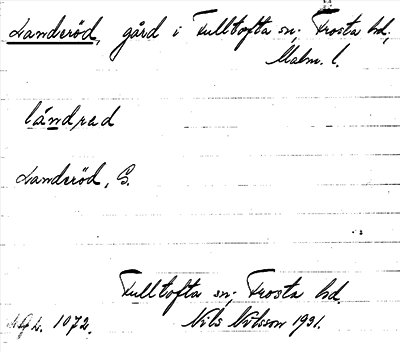 Landsröd, gård i Fulltofta sn; Frosta hd;
Malm. l.
lándrad
Landsröd, G.
Fulltofta sn; Frosta hd.
1072. Nils Nilsson 1931.